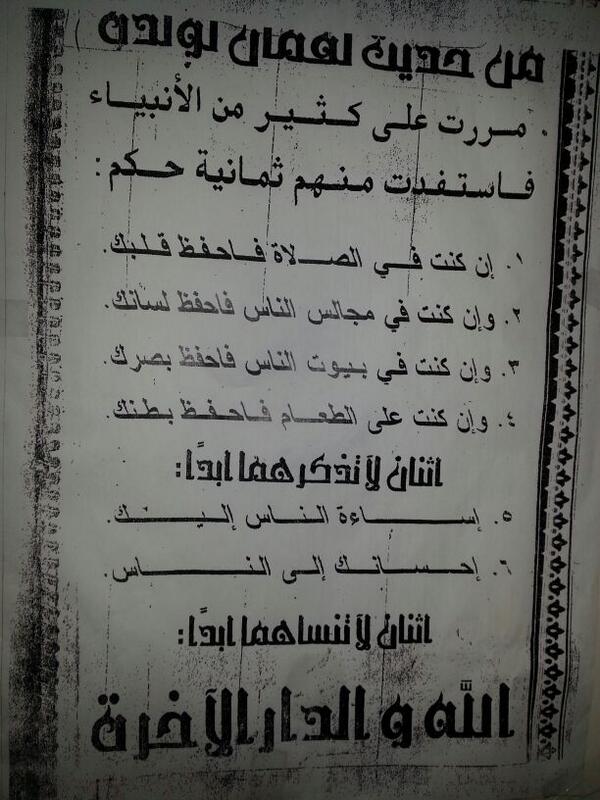 من حديث لقمان لولده
. مررت على كثير من الأنبياء
فاستفدت منهم ثمانية حكم :
١. إن كنت في الصلاة فاحفظ قلبك.
٢. وإن كنت في مجالس الناس فاحفظ لسانك.
٣. وإن كنت في بيوت الناس فاحفظ بصرك.
٤. وإن كنت على الطعام فاحفظ بطنك.
اثنان لا تذكرهما ابدًا:
٥. إساءة الناس إليك.
٦. إحسانك إلى الناس.
اثنان لا تنساهما ابدًا:
الله و الدار الآخرة